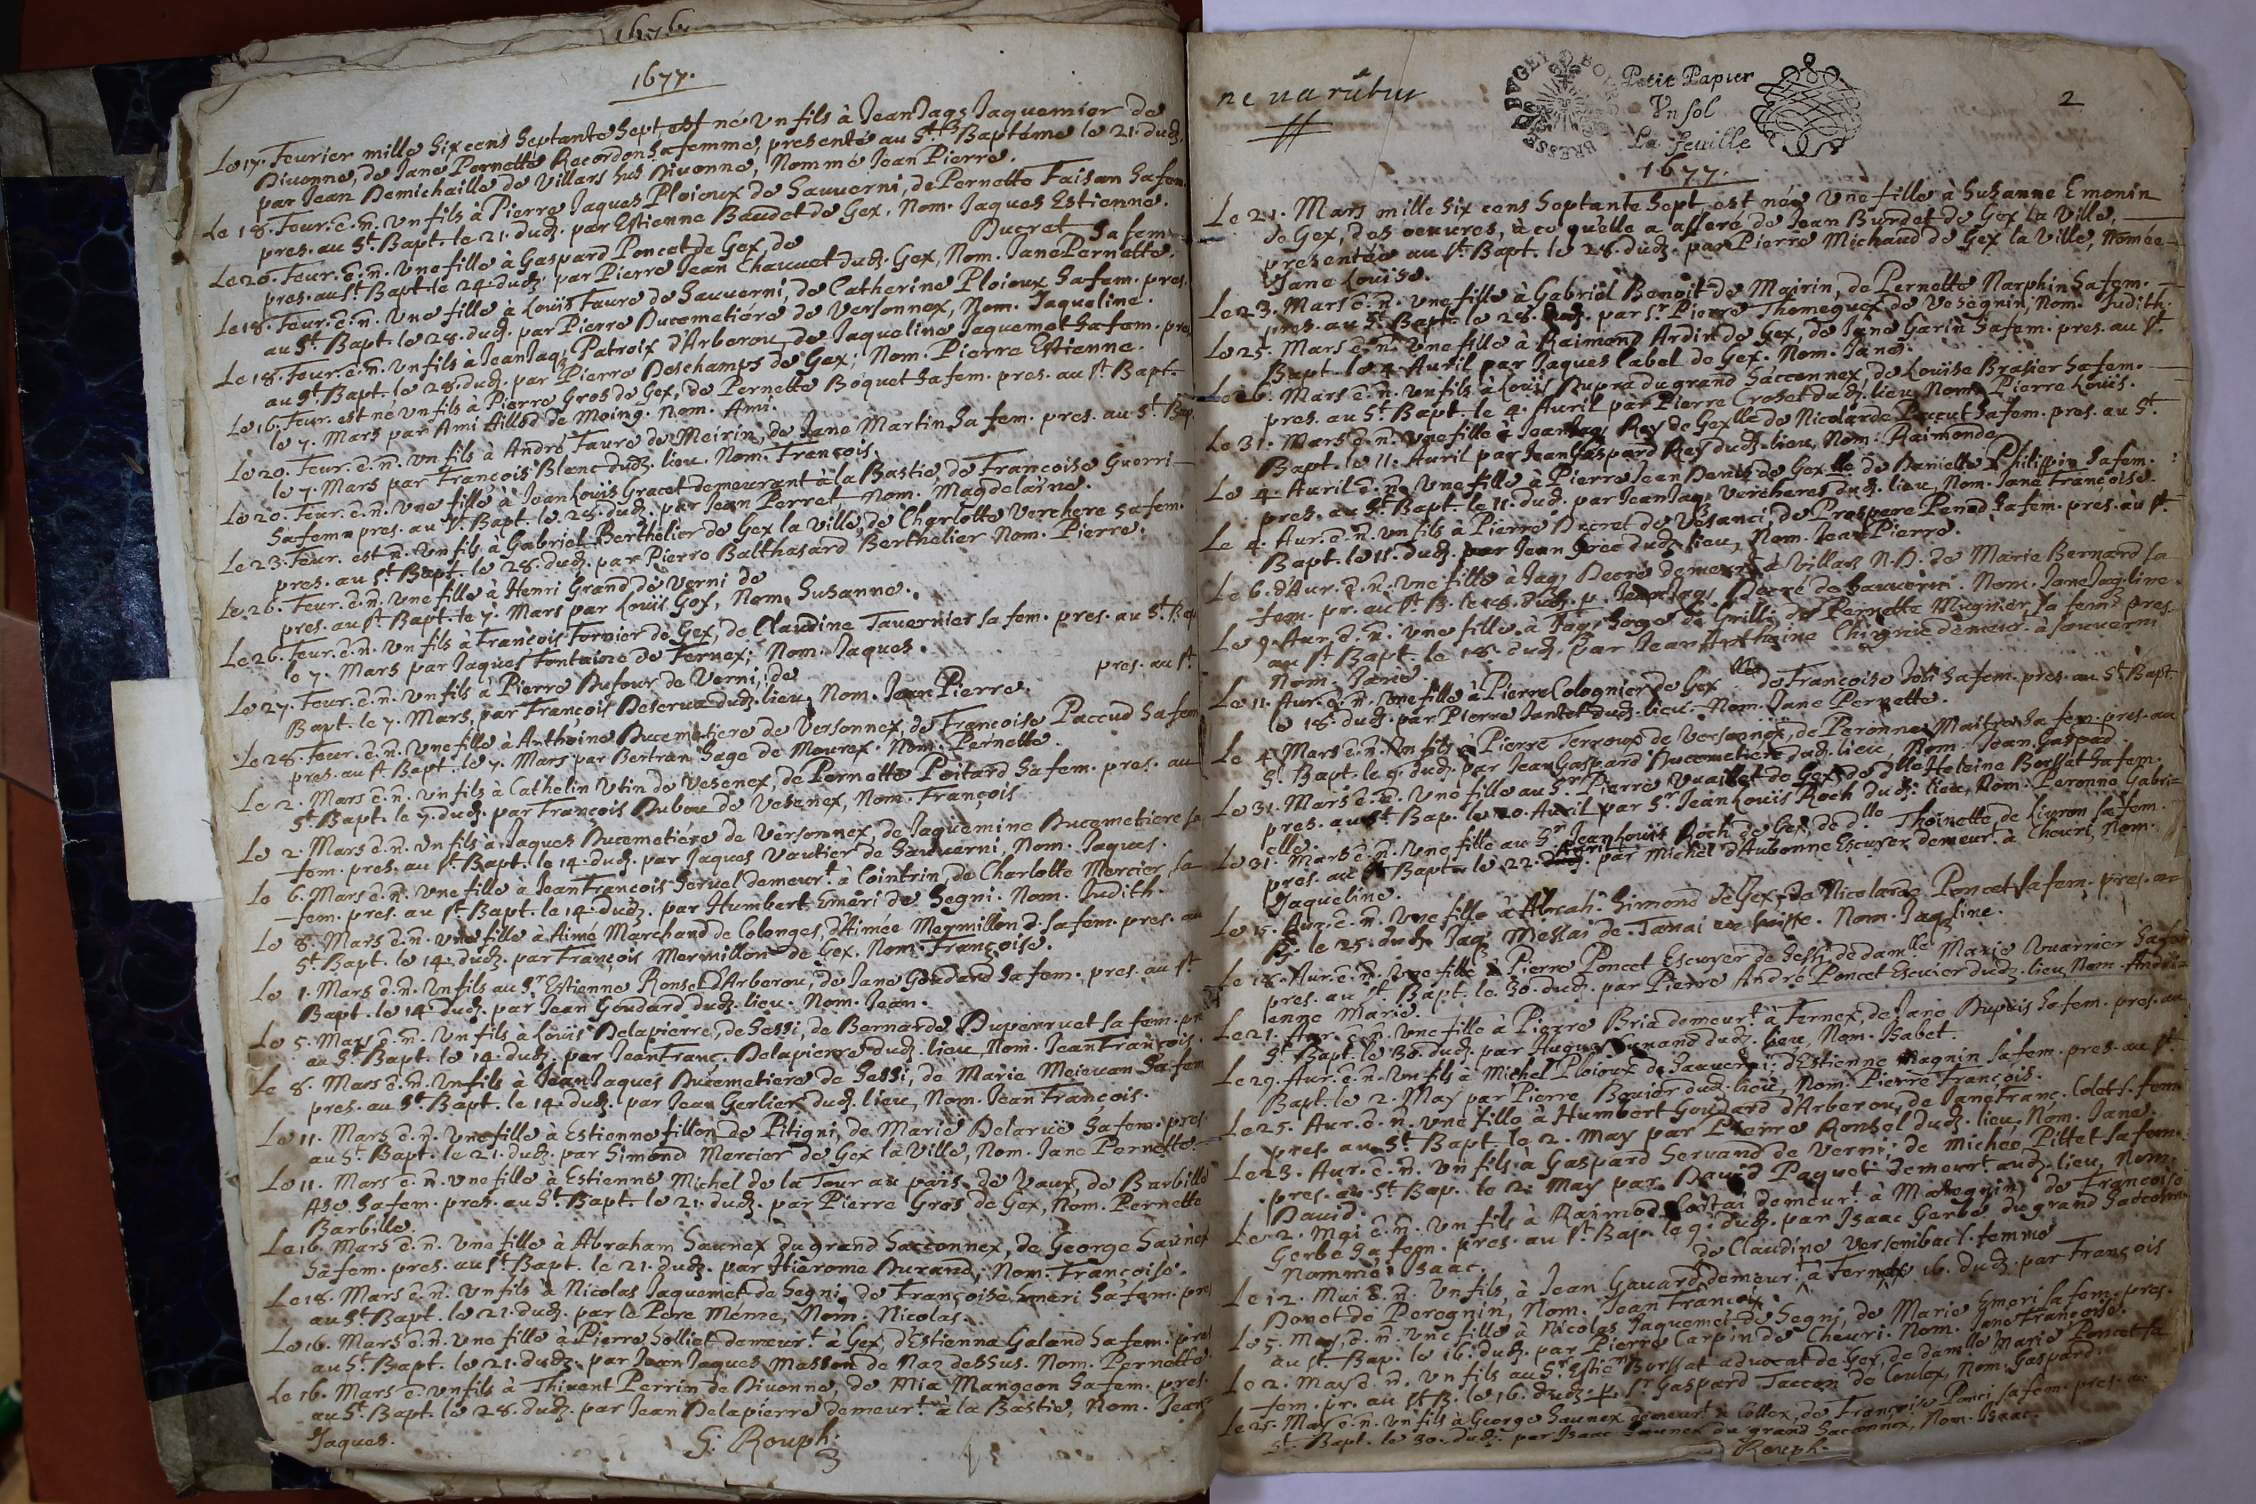 1676.
1677.
Le 17. Feurier mille Six cens Septante Sept, est né Vn fils à Jean Jaqs Jaquemier de
Diuonne, de Jane Pernette Recordon Sa femme, presenté au St. Baptéme le 21. dudz.
par Jean Demichaille de Villars Sus Diuonne, Nommé Jean Pierre.
Le 18. Feur. ē. n̄. Vn fils à Pierre Jaques Ploioux de Sauuerni, de Pernette Faisan Sa fem.
pres. au St. Bapt. le 21. dudz. par Estienne Baudet de Gex. Nom. Jaques Estienne.
Le 20. Feur. ē. n̄. Vne fille à Gaspard Poncet de Gex, de Ducret Sa fem.
pres. au St. Bapt. le 24. dudz. par Pierre Jean Chauuet dudz. Gex, Nom. Jane Pernette.
Le 18. Feur. ē. n̄. Vne fille à Louïs Faure de Sauuerni, de Catherine Ploioux Sa fem. pres.
au St. Bapt. le 28. dudz. par Pierre Ducemetiere de Versonnex, Nom. Jaqueline.
Le 18. Feur. ē. n̄. Vn fils à Jean Jaqs Patroix d'Arberou, de Jaqueline Jaquemet Sa fem. pres.
au St. Bapt. le 28. dudz. par Pierre Deschamps de Gex; Nom. Pierre Estienne.
Le 16. Feur. est né Vn fils à Pierre Gros de Gex, de Pernette Boquet Sa fem. pres. au St. Bapt.
le 7. Mars par Ami Aillod de Moing. Nom. Ami.
Le 20. Feur. ē. n̄. Vn fils à André Faure de Meirin, de Jane Martin Sa fem. pres. au St. Bap.
le 7. Mars par François Blanc dudz. lieu. Nom. François.
Le 20. Feur. ē. n̄. Vne fille à Jean Louïs Gracet demeurant à la Bastie, de Francoise Guerri
Sa fem. pres. au St. Bapt. le 28. dudz. par Jean Perret Nom. Magdelaine.
Le 23. Feur. est n̄. Vn fils à Gabriel Berthelier de Gex la Ville, de Charlotte Verchere Sa fem.
pres. au St. Bapt. le 28. dudz. par Pierre Balthasard Berthelier Nom. Pierre.
Le 26. Feur. ē. n̄. Vne fille à Henri Grand de Verni de
pres. au St. Bapt. le 7. Mars par Louïs Gex, Nom. Susanne.
Le 26. Feur. ē. n̄. Vn fils à François Fornier de Gex, de Claudine Tauernier Sa fem. pres. au St. Bap.
le 7. Mars par Jaques Fontaine de Fernex; Nom. Jaques.
Le 27. Feur. ē. n̄. Vn fils à Pierre Dufour de Verni, de pres. au St.
Bapt. le 7. Mars, par François Deserua dudz. lieu, Nom. Jean Pierre.
Le 28. Feur. ē. n̄. Vne fille à Anthoine Ducemetiere de Versonnex, de Françoise Paccud Sa fem
pres. au St. Bapt. le 7. Mars par Bertran Sage de Mourex. Nom. Pernette.
Le 2. Mars ē. n̄. Vn fils à Cathelin Vtin de Vesenex, de Pernette Poitard Sa fem. pres. au
St. Bapt. le 7. dudz. par François Dubou de Vesenex, Nom. François
Le 2. Mars ē. n̄. Vn fils à Jaques Ducemetiere de Versonnex, de Jaquemine Ducemetiere Sa
fem. pres. au St. Bapt. le 14. dudz. par Jaques Vautier de Sauuerni, Nom. Jaques.
Le 6. Mars ē. n̄. Vne fille à Jean François Seruel demeurt. à Cointrin, de Charlotte Mercier Sa
fem. pres. au St. Bapt. le 14. dudz. par Humbert Emeri de Segni. Nom. Judith.
Le 8. Mars ē. n̄. Vne fille à Aimé Marchand de Colonges, d'Aimée Mermillon d. Sa fem. pres. au
St. Bapt. le 14. dudz. par François Mermillon de Gex. Nom. Françoise.
Le 1. Mars ē. n̄. Vn fils au Sr. Estienne Ronsel d'Arberou, de Jane Goudard Sa fem. pres. au St.
Bapt. le 14. dudz. par Jean Goudard dudz. lieu. Nom. Jean.
Le 5. Mars ē. n̄. Vn fils à Louïs Delapierre, de Sessi, de Bernarde Duperruet Sa fem. pr.
au St. Bapt. le 14. dudz. par Jean Franç. Delapierre dudz. lieu, Nom. Jean François.
Le 8. Mars ē. n̄. Vn fils à Jean Jaques Ducemetiere de Sessi, de Marie Meieuan Sa fem
pres. au St. Bapt. le 14. dudz. par Jean Gerlier dudz. lieu, Nom. Jean François.
Le 11. Mars ē. n̄. Vne fille à Estienne fillon de Pitigni, de Marie Delarue Sa fem. pres.
au St. Bapt. le 21. dudz. par Simond Mercier de Gex la Ville, Nom. Jane Pernette.
Le 11. Mars ē. n̄. Vne fille à Estienne Michel de la Tour au païs de Vaux, de Barbille
Ase Sa fem. pres. au St. Bapt. le 21. dudz. par Pierre Gros de Gex, Nom. Pernette
Barbille.
Le 16. Mars ē. n̄. Vne fille à Abraham Saunex du grand Sacconnex, de George Saunex
Sa fem. pres. au St. Bapt. le 21. dudz. par Hierome Durand, Nom. Françoise.
Le 18. Mars ē. n̄. Vn fils à Nicolas Jaquemet de Segni, de Françoise Emeri Sa fem. pres
au St. Bapt. le 21. dudz. par le Pere Méme, Nom. Nicolas.
Le 16. Mars ē. n̄. Vne fille à Pierre Solliet demeurt. à Gex, d'Estienna Galand Sa fem. pres
au St. Bapt. le 21. dudz. par Jean Jaques Masson de Naz dessus. Nom. Pernette.
Le 16. Mars ē. Vn fils à Thiuent Perrin de Diuonne, de Mia Mangeon Sa fem. pres.
au St. Bapt. le 28. dudz. par Jean Delapierre demeurt. à la Bastie, Nom. Jean
Jaques.
G. Rouph.
ne uarietur
BRESSE BVGEY
Petit Papier
Vn sol
La feuille
2
1677.
Le 21. Mars mille Six cens Septante Sept est née Vne fille à Susanne Emonin
de Gex, des oeuures, à ce qu'elle a asseré, de Jean Burdet de Gex La Ville,
presentée au St. Bapt. le 28. dudz. par Pierre Michaud de Gex la Ville, Nomée
Jane Louïse.
Le 23. Mars ē. n̄. Vne fille à Gabriel Benoit de Mairin, de Pernette Narphin Sa fem.
pres. au St. Bapt. le 28. dudz. par Sr. Pierre Thomeguex de Vesegnin, Nom. Judith.
Le 25. Mars ē. n̄. Vne fille à Raimond Ardin de Gex, de Jane Garin Sa fem. pres. au St.
Bapt. le 4. Auril par Jaques Label de Gex. Nom. Jane.
Le 26. Mars ē. n̄. Vn fils à Louïs Dupra du grand Sacconnex, de Louïse Brasier Sa fem.
pres. au St. Bapt. le 4. Auril par Pierre Croset dudz. lieu, Nom. Pierre Louïs.
Le 31. Mars ē. n̄. Vne fille à Jean Jaqs Rey de Gex lle de Nicolarde Sa fem. pres. au St.
Bapt. le 11. Auril par Jean Gaspard Rey dudz. lieu, Nom. Raimonde.
Le 4. Auril ē. n̄. Vne fille à Pierre Jean Denis de Gex lle de Danielle Philippin Sa fem.
pres. au St. Bapt. le 11. dudz. par Jean Jaqs Vercheres dudz. lieu, Nom. Jane Francoise.
Le 4. Aur. ē. n̄. Vn fils à Pierre Decret de Vesanci, de Prospere Penod Sa fem. pres. au St.
Bapt. le 11. dudz. par Jean dudz. lieu, Nom. Jean Pierre.
Le 6. d'Aur. ē. n̄. Vne fille à Jaqs Decré demeurt. à Villar N.D. de Marie Bernard Sa
fem. pr. au St. B. le 18. dudz. p. Jean Jaqs Decré de Sauuerni. Nom. Jane Jaq. line.
Le 9. Aur. ē. n̄. Vne fille à Jaqs de Grilli, de Pernette Mugnier Sa fem. pres.
au St. Bapt. le 18. dudz. par Jean Anthoine demeur. à Sauuerni
Nom. Jane.
Le 11. Aur. ē. n̄. Vne fille à Pierre Colognier de Gex lle de Francoise Sa fem. pres. au St. Bapt.
le 18. dudz. par Pierre Jantet dudz. lieu. Nom. Jane Pernette.
Le 4. Mars ē. n̄. Vn fils à Pierre Terroux de Versonnex, de Peronne Maitre Sa fem. pres. au
St. Bapt. le 9. dudz. par Jean Gaspard Ducemetiere dudz. lieu, Nom. Jean Gaspard.
Le 31. Mars ē. n̄. Vne fille au Sr. Pierre Vuaillet de Gex, de dlle Heleine Borssat Sa fem.
pres. au St. Bap. le 20. Auril par Sr. Jean Louïs Roch dudz. lieu, Nom. Peronne Gabri-
elle.
Le 31. Mars ē. n̄. Vne fille au Sr. Jean Louïs Roch de Gex, de dlle Thoinette de Liuron Sa fem.
pres. au St. Bapt. le 22. Auril par Michel d'Aubonne Escuyer demeurt. à Cheuri, Nom.
Jaqueline.
Le 15. Aur. ē. n̄. Vne fille à Abrah. Simond de Gex, de Nicolarde Poncet Sa fem. pres. au
B. le 25. dudz. Jaq. Meslai de Tanai en suisse. Nom. Jaq. line.
Le 18. Aur. ē. n̄. Vne fille à Pierre Poncet Escuyer de Sessi, de damlle Marie Vuarrier Sa fem
pres. au St. Bapt. le 30. dudz. par Pierre André Poncet Escuier dudz. lieu, Nom. Andri-
enne Marie.
Le 21. Aur. ē. n̄. Vne fille à Pierre Bria demeurt. à Fernex, de Jane Dupuis Sa fem. pres. au
St. Bapt. le 30. dudz. par Hugue dudz. lieu, Nom. Isabet.
Le 29. Aur. ē. n̄. Vn fils à Michel Ploioux de Sauuerni, d'Estienne Magnin Sa fem. pres. au St.
Bapt. le 2. May par Pierre Bouier dudz. lieu, Nom. Pierre François.
Le 25. Aur. ē. n̄. Vne fille à Humbert Goudard d'Arberou, de Jane Franc. Colet S. fem.
pres. au St. Bapt. le 2. May par Pierre Ronsel dudz. lieu, Nom. Jane.
Le 23. Aur. ē. n̄. Vn fils à Gaspard Seruand de Verni, de Michee Pittet Sa fem.
pres. au St. Bap. le 2. May par Dauid Paquet demeurt. audz. lieu, Nom.
Dauid.
Le 2. Mai ē. n̄. Vn fils à Raimod demeurt. à Mategnin, de Francoise
Gerbe Sa fem. pres. au St. Bap. le 9. dudz. par Isaac Gerbe du grand Saccon.
Nommé: Isaac.
de Claudine S. femme
Le 12. Mai ē. n̄. Vn fils, à Jean Gauard demeur. à Fernex 16. dudz. par François
Donet de Peregnin, Nom. Jean François
Le 5. May, ē. n̄. Vne fille à Nicolas Jaquemet de Segni, de Marie Emeri Sa fem. pres.
au St. Bap. le 16. dudz. par Pierre Carpin de Cheuri. Nom. Jane Francoise.
Le 2. May ē. n̄. Vn fils au Sr. Estien. Borssat aduocat de Gex, de damlle Marie Poncet Sa
fem. pr. au St. B. le 16. dudz. p. Sr. Gaspard Taccon de Coulex, Nom. Gaspard.
Le 25. May ē. n̄. Vn fils à George Saunex demeurt. à Collex, de Françoise Sa fem. pres. au
St. Bapt. le 30. dudz. par Isaac Saunex du grand Saconnex, Nom. Isaac.
Rouph.